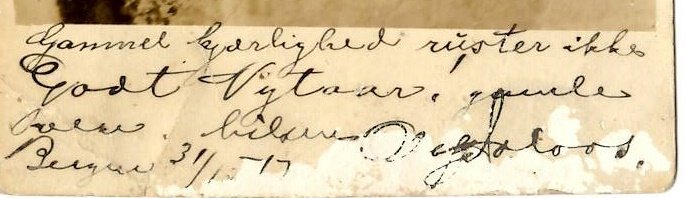 Gammel kjærlighed ruster ikke
Godt Nytaar, gamle
hilsen
Bergen 31/12-17